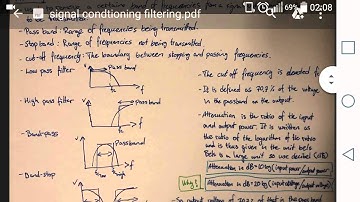 signal condtioning filtering.pdf
69%
02:08
- Pass band: Range of frequencies being transmitted.
- Stop band: Range of frequencies not being transmitted.
- cut-off frequency: The boundary between stopping and passing frequencies.
- Low pass filter
Pass band
V
fc
f
- High pass filter
Pass band
V
fc
f
- Band-pass
Passband
V
f
- Band-stop
- The cut off frequency is denoted
- It is defined as 70.7% of the voltage
in the passband on the output.
- Attenuation is the ratio of the input
and output power. It is written as
the ratio of the logarithm of the ratio
and is thus given in the unit bels
Bels is large unit so use decibel (dB)
Attenuation in dB = 10 log (input power/output power)
Why?
Attenuation in dB = 20 log (input voltage/output voltage)
- So output voltage of 70.7% of that in the pass band